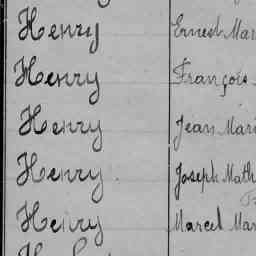 Henry Ernest Mar
Henry François
Henry Jean Mari
Henry Joseph Math
Henry Marcel Mar